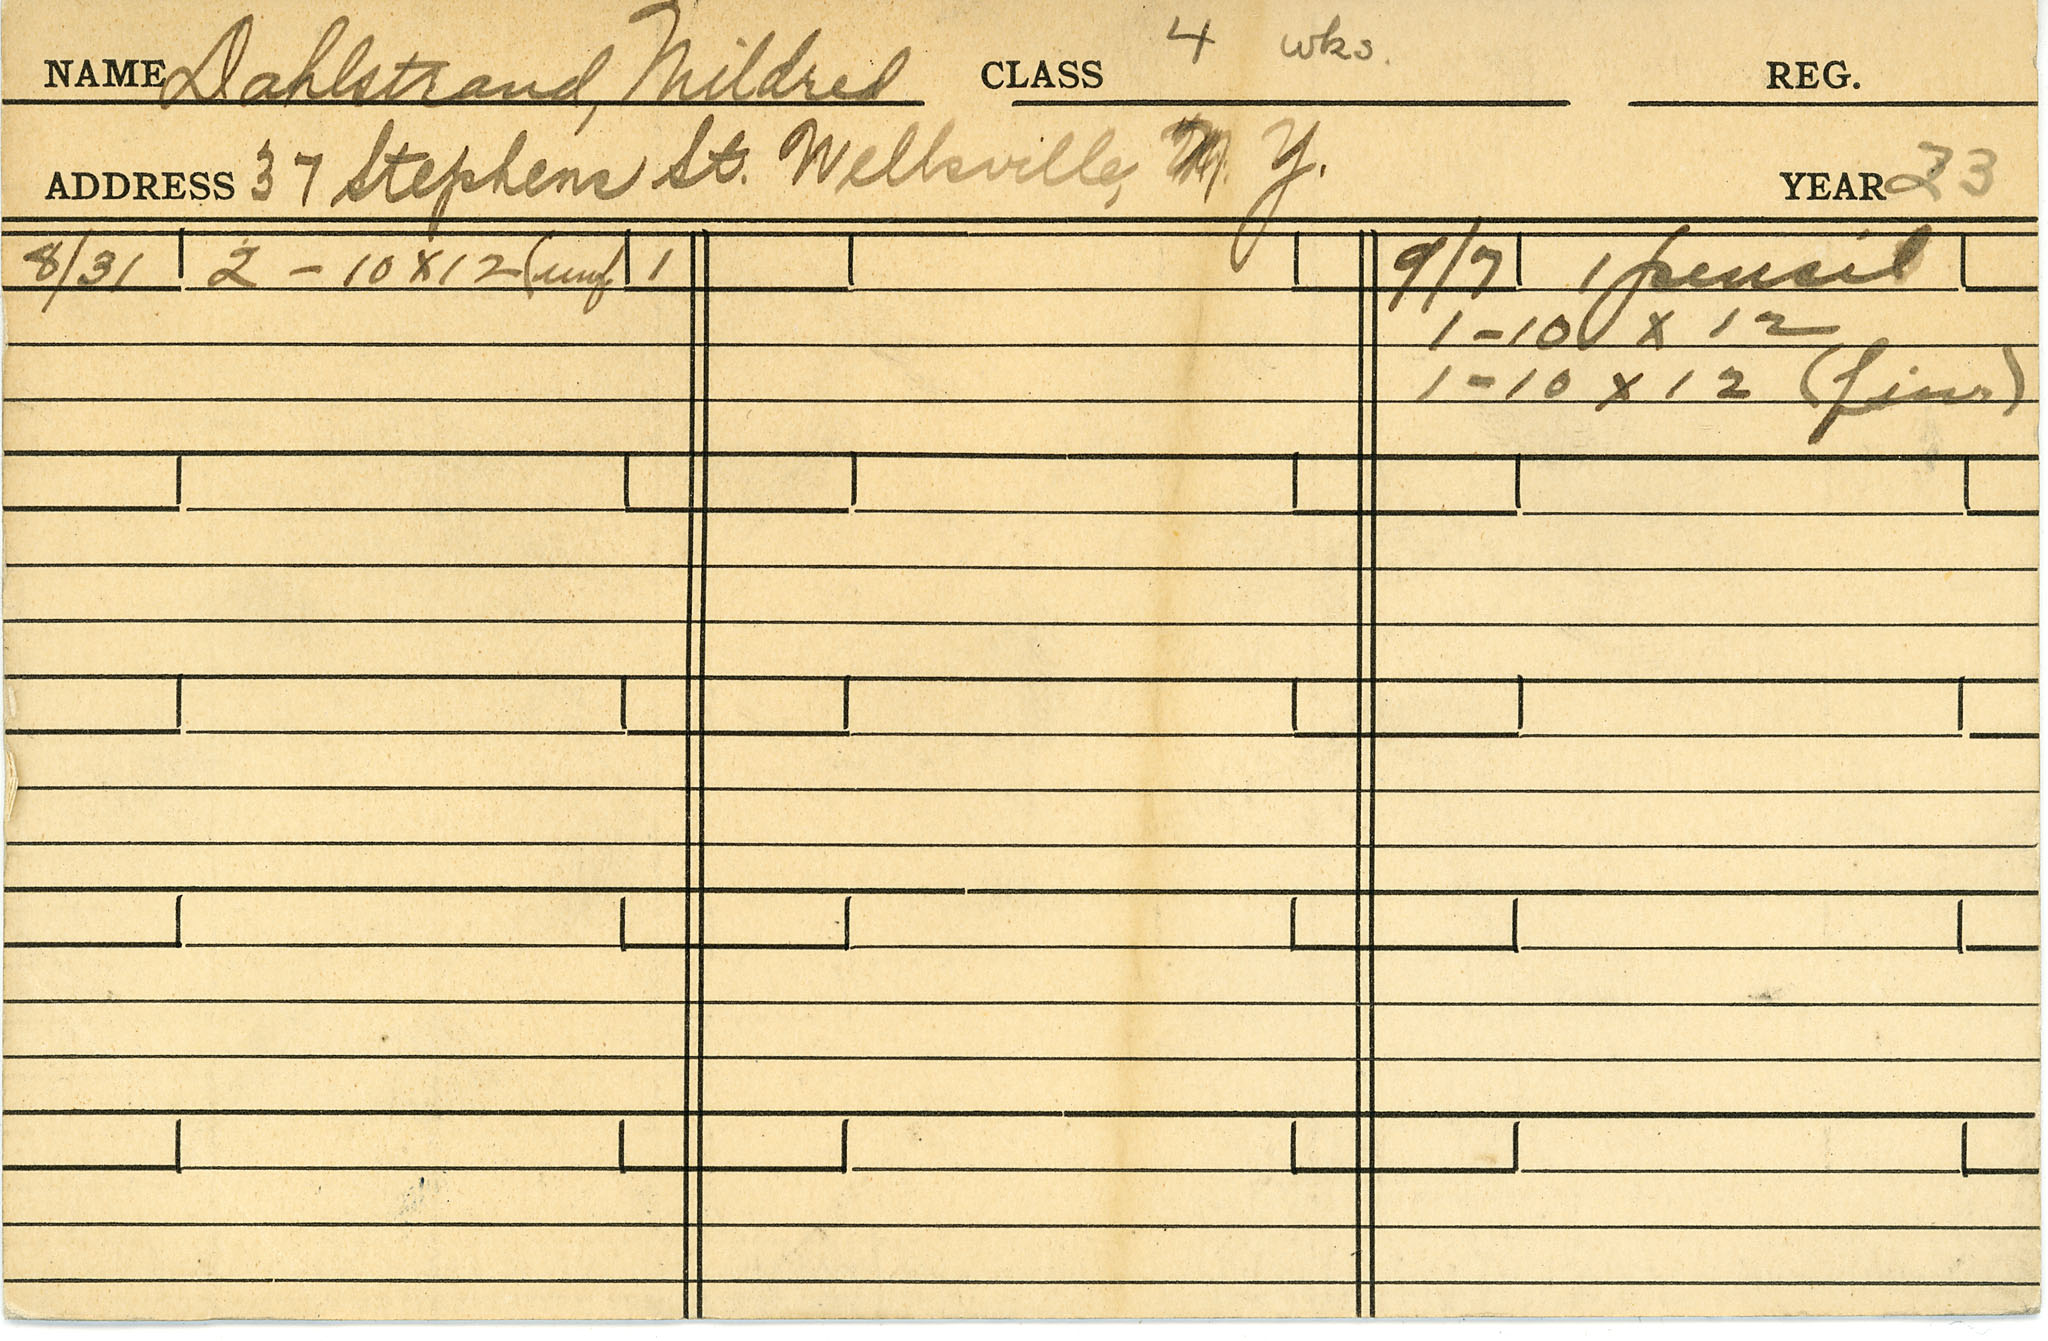 NAME Dahlstrand, Mildred CLASS 4 wks. REG.
ADDRESS 37 Stephens St. Wellsville, N. Y. YEAR 23
8/31 2 - 10 x 12 (unf 1 9/7 1 pencil
1 - 10 x 12
1 - 10 x 12